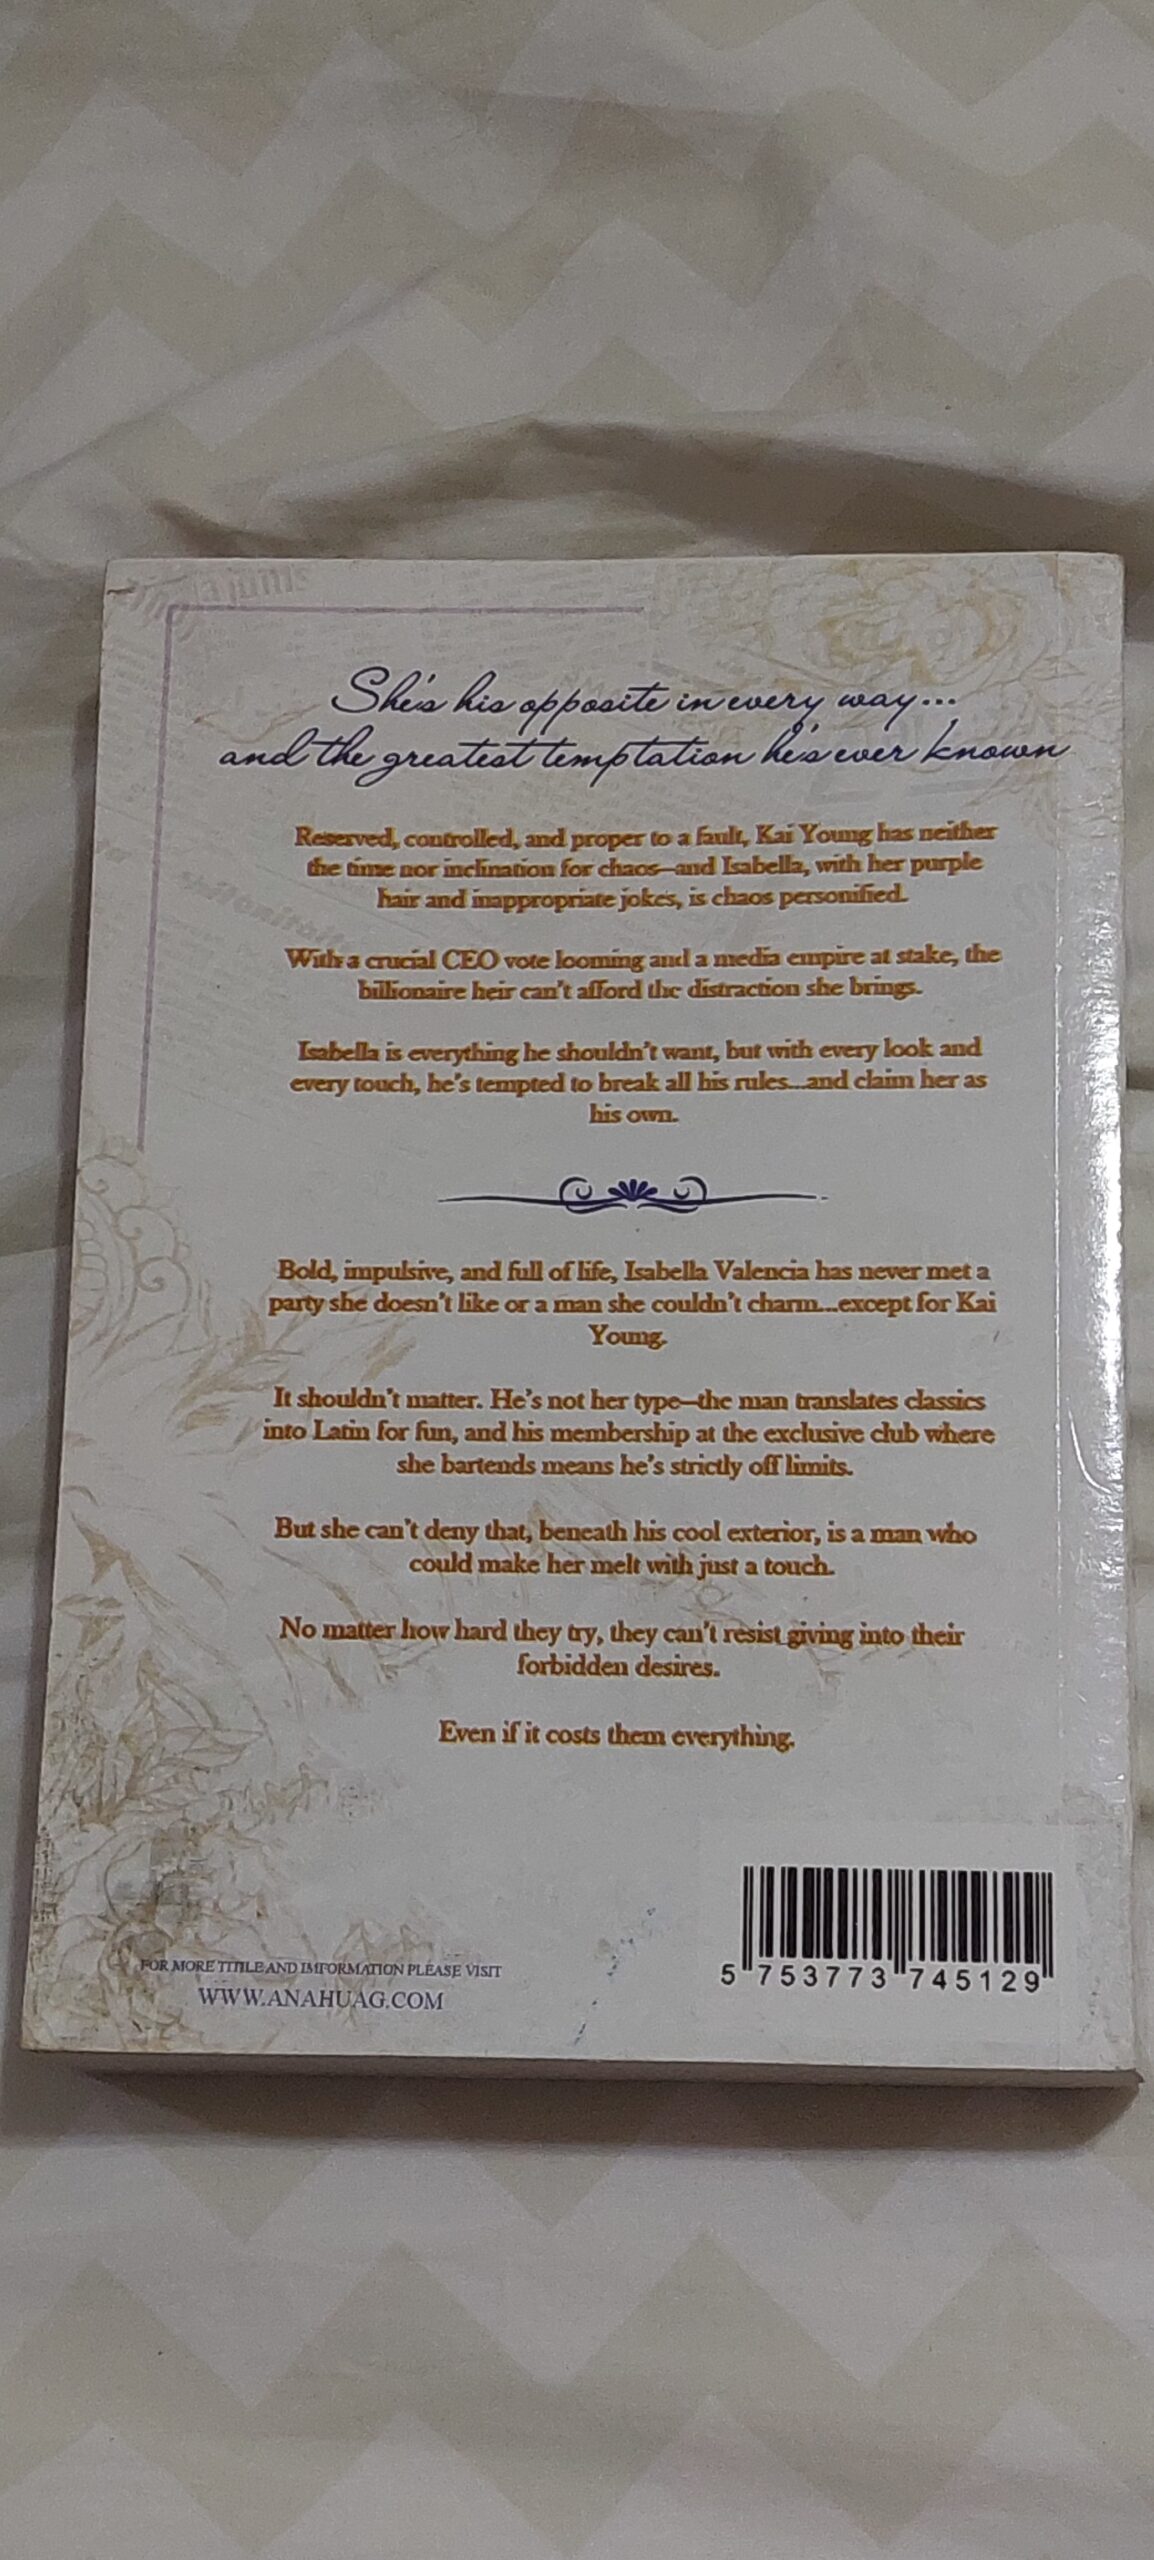 She's his opposite in every way...
and the greatest temptation he's ever known
Reserved, controlled, and proper to a fault, Kai Young has neither
the time nor inclination for chaos—and Isabella, with her purple
hair and inappropriate jokes, is chaos personified.
With a crucial CEO vote looming and a media empire at stake, the
billionaire heir can't afford the distraction she brings.
Isabella is everything he shouldn't want, but with every look and
every touch, he's tempted to break all his rules...and claim her as
his own.
Bold, impulsive, and full of life, Isabella Valencia has never met a
party she doesn't like or a man she couldn't charm...except for Kai
Young.
It shouldn't matter. He's not her type—the man translates classics
into Latin for fun, and his membership at the exclusive club where
she bartends means he's strictly off limits.
But she can't deny that, beneath his cool exterior, is a man who
could make her melt with just a touch.
No matter how hard they try, they can't resist giving into their
forbidden desires.
Even if it costs them everything.
FOR MORE TITILE AND IMFORMATION PLEASE VISIT
WWW.ANAHUAG.COM
5 753773 745129